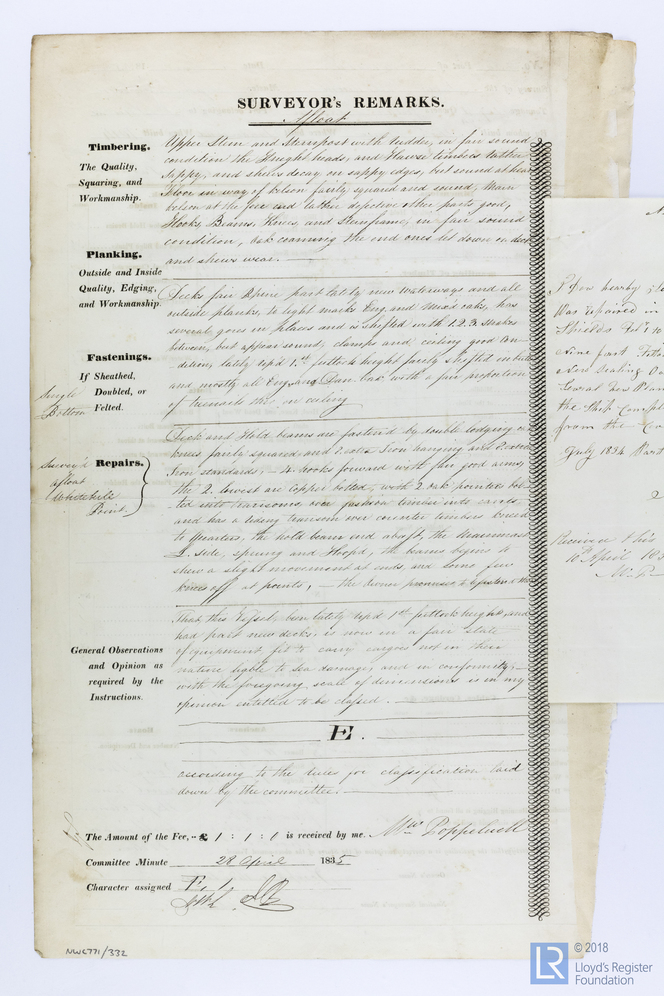 SURVEYOR's REMARKS.
Afloat
Timbering.
The Quality,
Squaring, and
Workmanship.
Upper Stem and Sternpost with rudder, in fair sound
condition the Knight heads, and Hawse timbers rather
sappy, and shews decay on sappy edges, but sound at heart
Floor in way of kelson fairly squared and sound, Main
kelson at the fore end rather defective other parts good,
Hooks, Beams, Knees, and Sternframe, in fair sound
condition, Oak coaming the end ones let down on deck
and shews wear.
Planking.
Outside and Inside
Quality, Edging,
and Workmanship.
Decks fair Apine part lately new waterways and all
outside planks, to light marks Eng. and oak, has
several gores in places and is shifted with 1.2.3 strakes
between, but appear sound, clamps and ceiling good con-
dition, lately top'd 1st futtock height fairly shifted on butts
and mostly all Eng. and Dan. oak with a fair proportion
of treenails thro. on ceiling
Fastenings.
If Sheathed,
Doubled, or
Felted.
Single
Bottom
Deck and Hold beams are fastened by double lodging
knees, fairly squared and Iron hanging and
Iron standards, - 4 hooks forward with fair good arms,
the 2. lowest are Copper bolted, with 2 oak pointers bol-
ted into transoms, fashion timber into
and has a transom over counter timbers kneed
to Quarters, the hold beam end abaft, the mainmast
L. side, sprung and Hoop'd, the beams begins to
shew a slight movement at ends, and some few
knees off at points, - the Owner promises to
Repairs.
Survey'd
Afloat
Whitehill
Point.
General Observations
and Opinion as
required by the
Instructions.
That this Vessel, been lately top'd 1st futtock height, and
had part new decks, is now in a fair state
of equipment fit to carry cargoes not in their
nature liable to sea damage, and in conformity,
with the foregoing scale of dimensions is in my
opinion entitled to be classed.
E.
according to the rules for classification laid
down by the committee.
The Amount of the Fee, - £ 1 : 1 : 1 is received by me. Mw Poppelwell
Committee Minute 28 April 1835
Character assigned E, 1
NWC771/332
was repaired in
Shields
Nine part
New
the Ship
from the
July 1834 Part
Received this
10th April
© 2018
LR
Lloyd's Register
Foundation